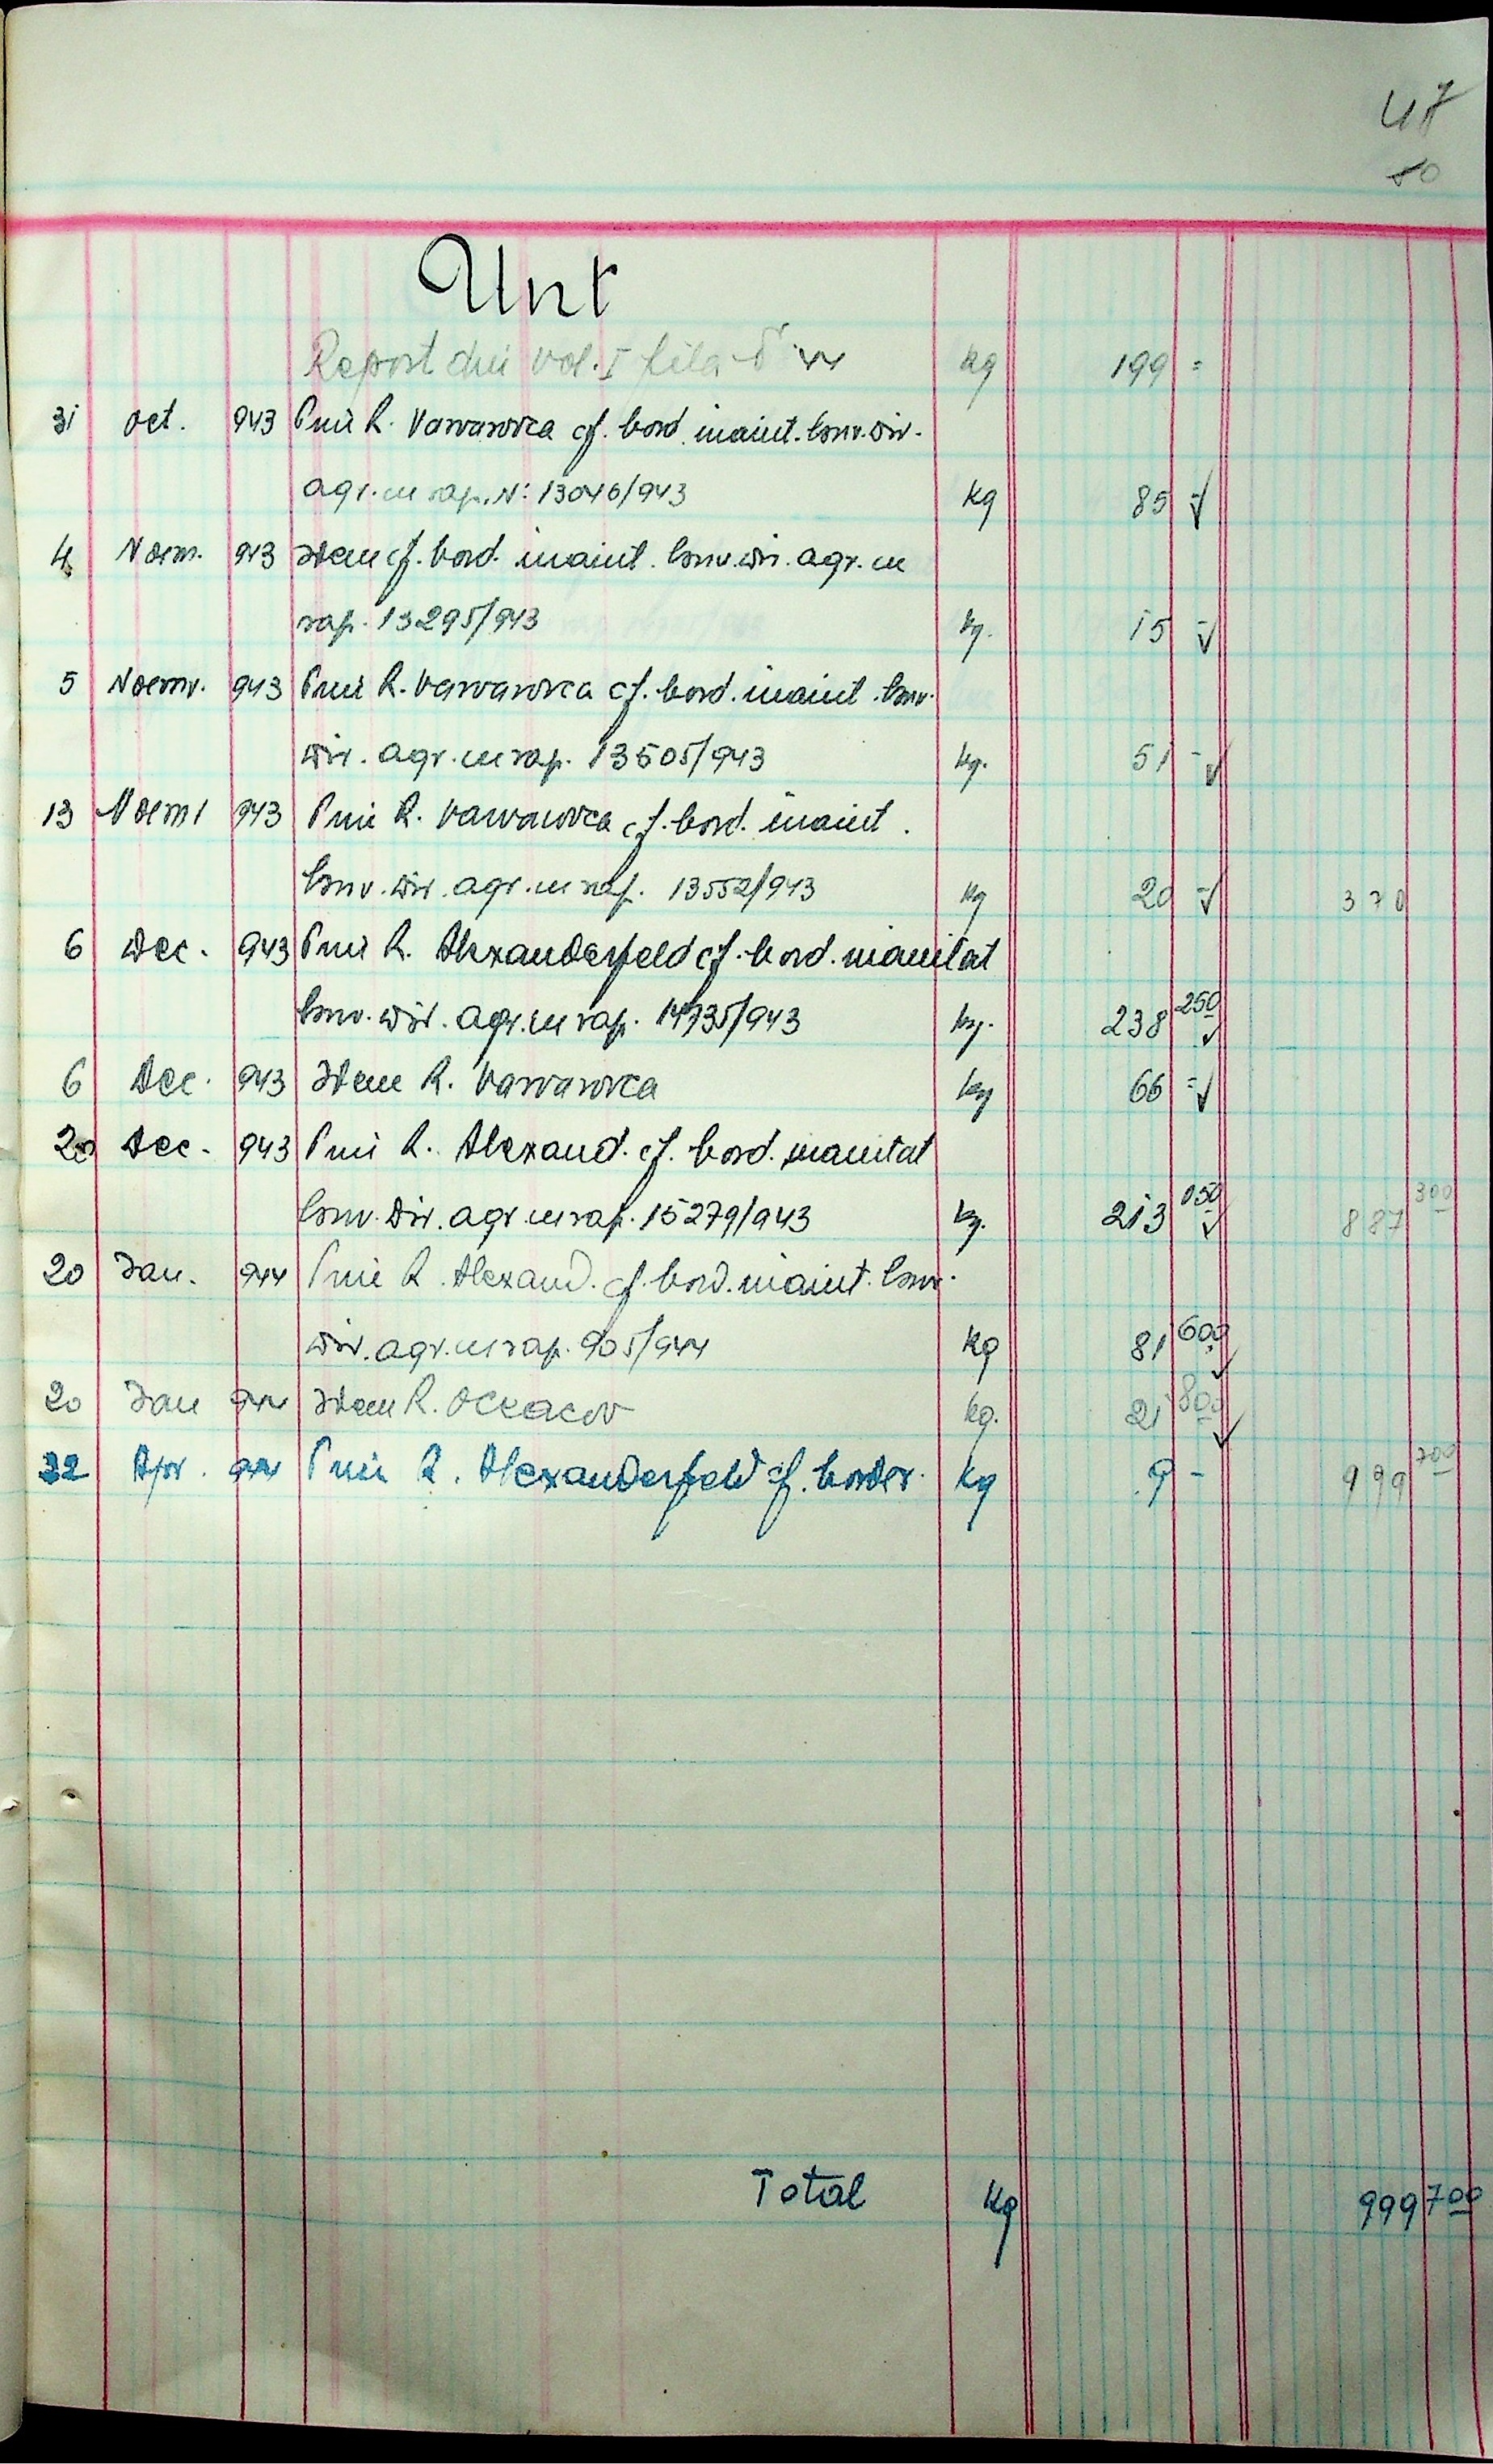 47
80
Unt
Report din vol. I fila 44 kg 199 =
31 Oct. 943 Prin R. Varvarovca cf. bord. inaint. Guv. Dir.
agr. cu rap. N: 13046/943 kg 85 -
4 Noem. 943 Idem cf. bord. inaint. Guv. Dir. agr. cu
rap. 13295/943 kg. 15 -
5 Noemv. 943 Prin R. Varvarovca cf. bord. inaint. Guv.
Dir. agr. cu rap. 13505/943 kg. 51 -
13 Noem 943 Prin R. Varvarovca cf. bord. inaint.
Guv. Dir. agr. cu rap. 13552/943 kg 20 - 370
6 Dec. 943 Prin R. Alexanderfeld cf. bord. inaintat
Guv. Dir. agr. cu rap. 14735/943 kg. 238 250
6 Dec. 943 Idem R. Varvarovca kg 66 =
20 Dec. 943 Prin R. Alexand. cf. bord. inaintat
Guv. Dir. agr. cu rap. 15279/943 kg. 213 050 887 300
20 Ian. 944 Prin R. Alexand. cf. bord. inaint. Guv.
Dir. agr. cu rap. 905/944 kg 81 600
20 Ian 944 Idem R. Oceacov kg. 21 800
22 Apr. 944 Prin R. Alexanderfeld cf. border. kg 9 - 999 700
Total kg 999 700